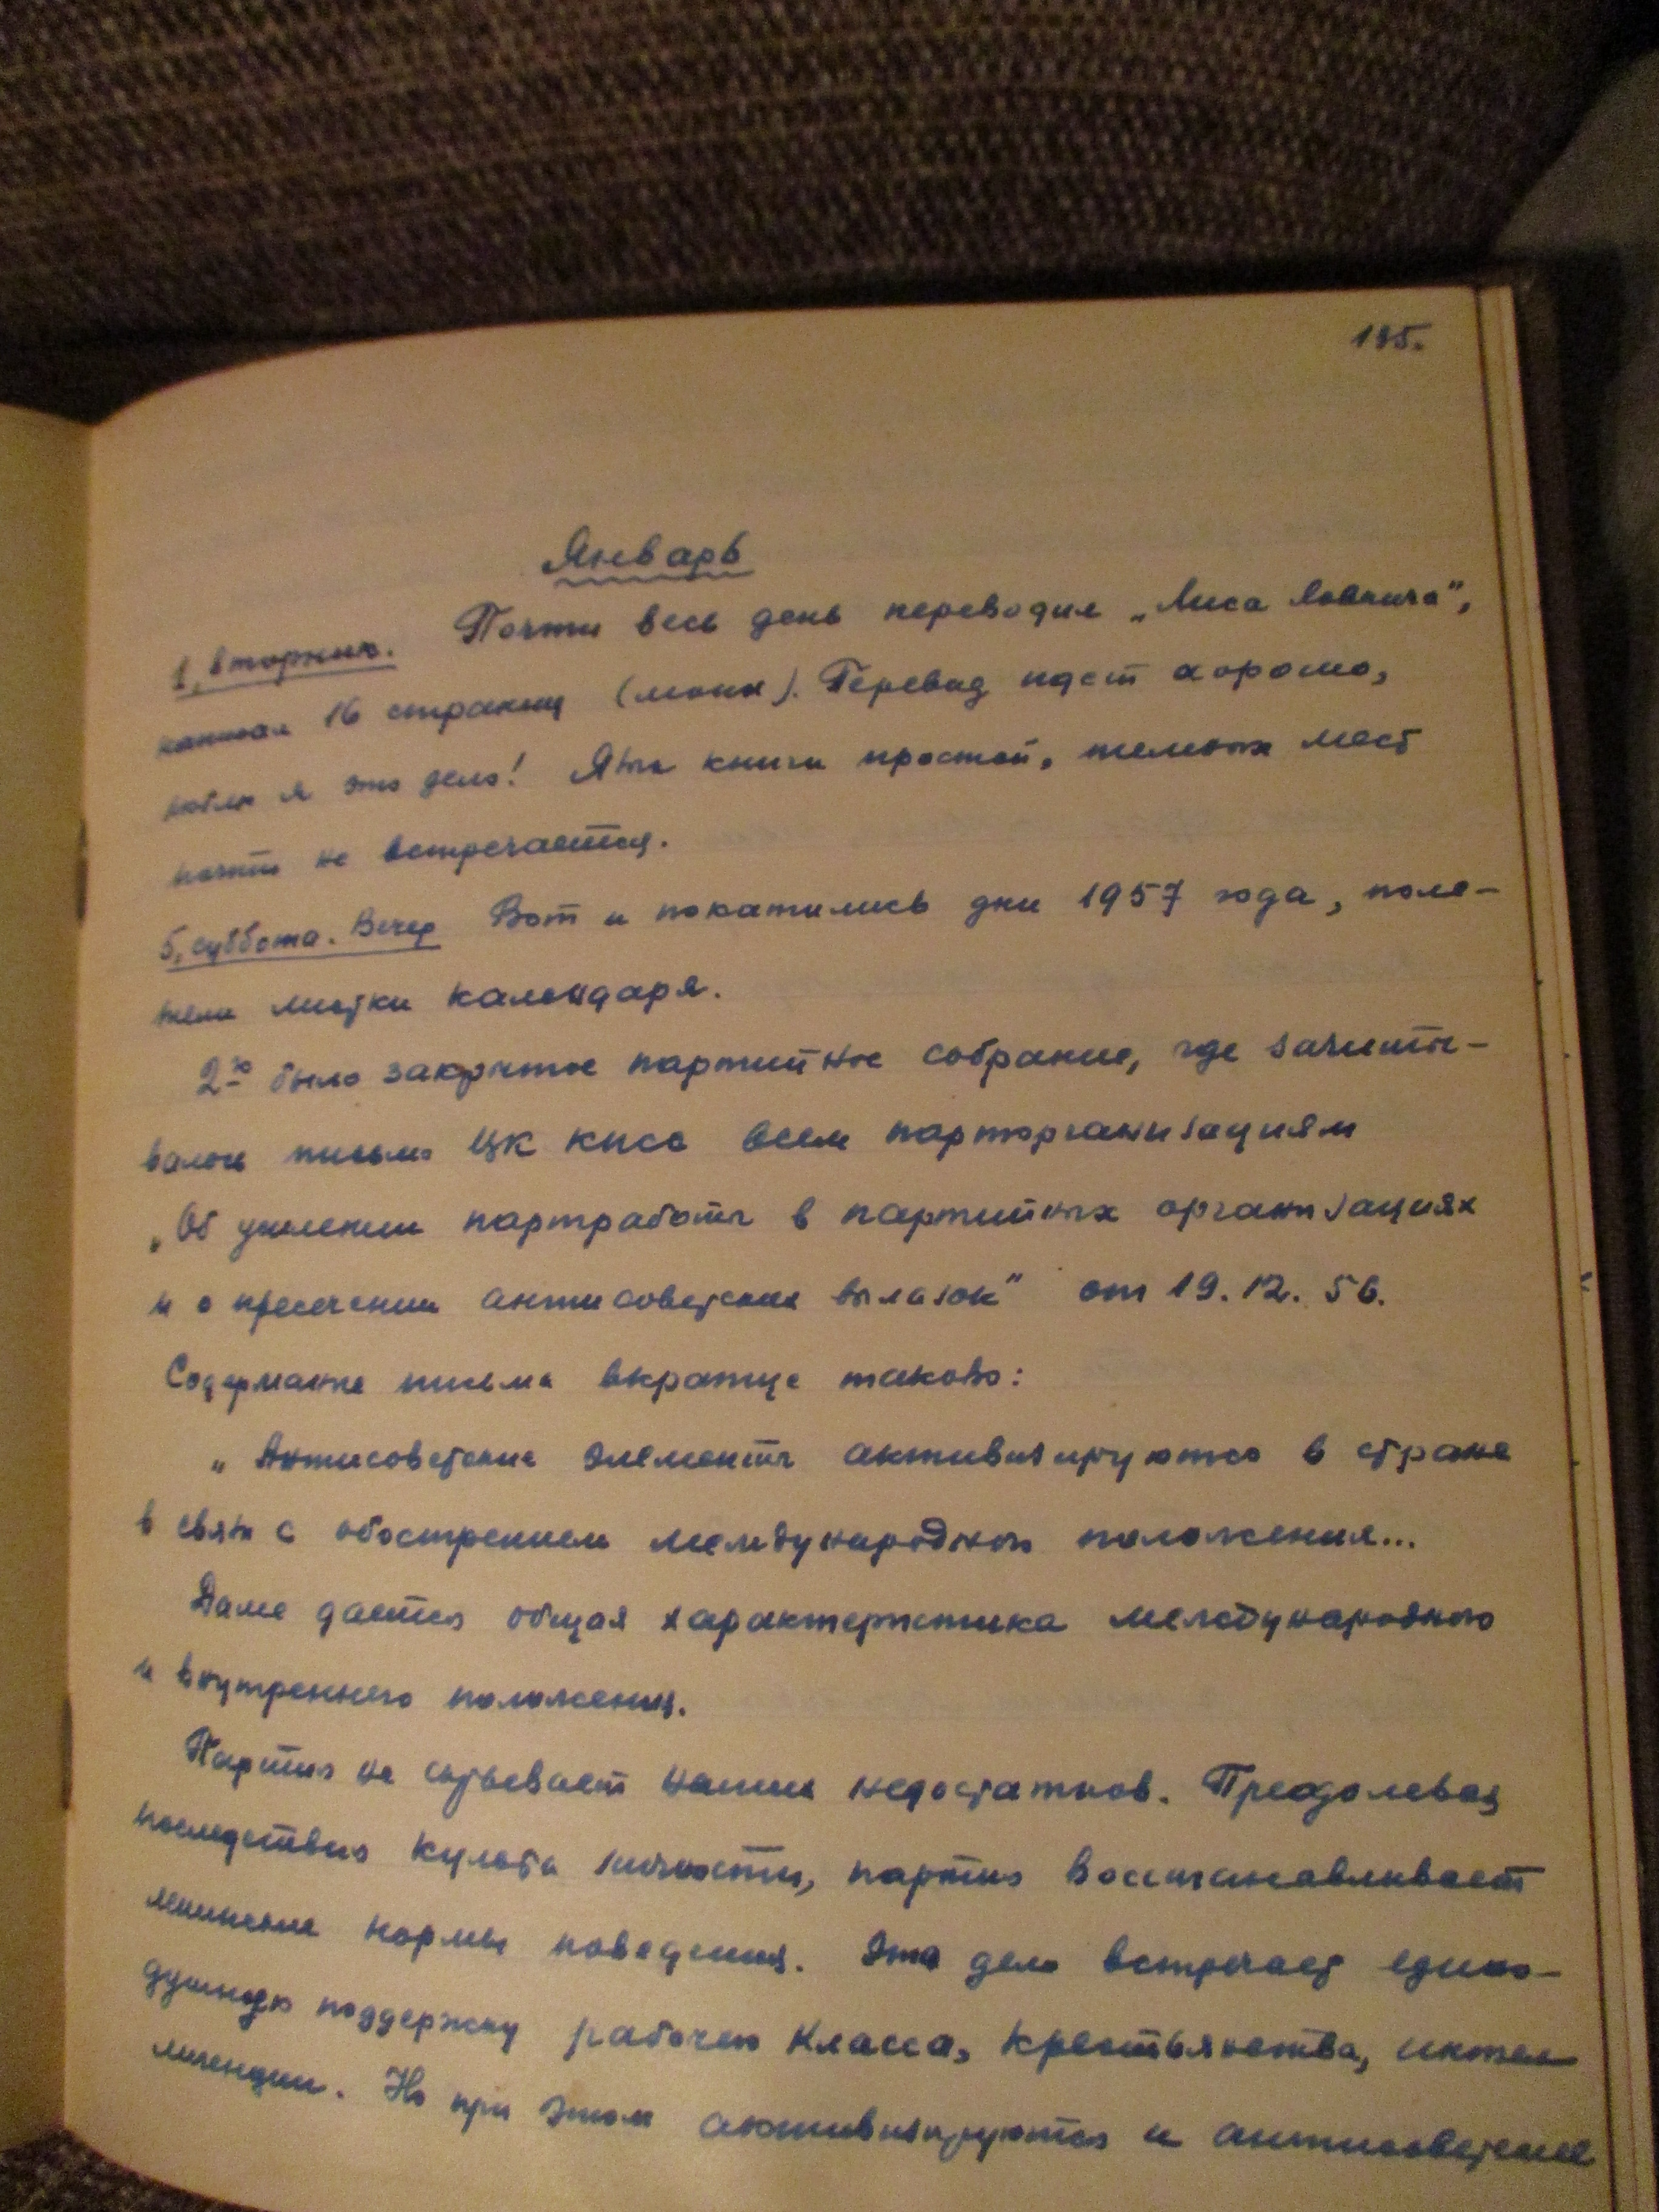 195.
Январь
1, вторник. Почти весь день переводил „Лиса
16 страниц (моих). Перевод идет хорошо,
люблю я это дело! Язык книги простой, темных мест
почти не встречается.
5, суббота. Вечер Вот и покатились дни 1957 года, поле-
тели листки календаря.
2го было закрытое партийное собрание, где зачиты-
валось письмо ЦК КПСС всем парторганизациям
„Об усилении партработы в партийных организациях
и о пресечении антисоветских вылазок" от 19.12.56.
Содержание письма вкратце таково:
„Антисоветские элементы активизируются в стране
в связи с обострением международного положения...
Далее дается общая характеристика международного
и внутреннего положения.
Партия не скрывает наших недостатков. Преодолевая
последствия культа личности, партия восстанавливает
ленинские нормы поведения. Это дело встречает едино-
душную поддержку рабочего класса, крестьянства, интел-
лигенции. Но при этом активизируются и антисоветские